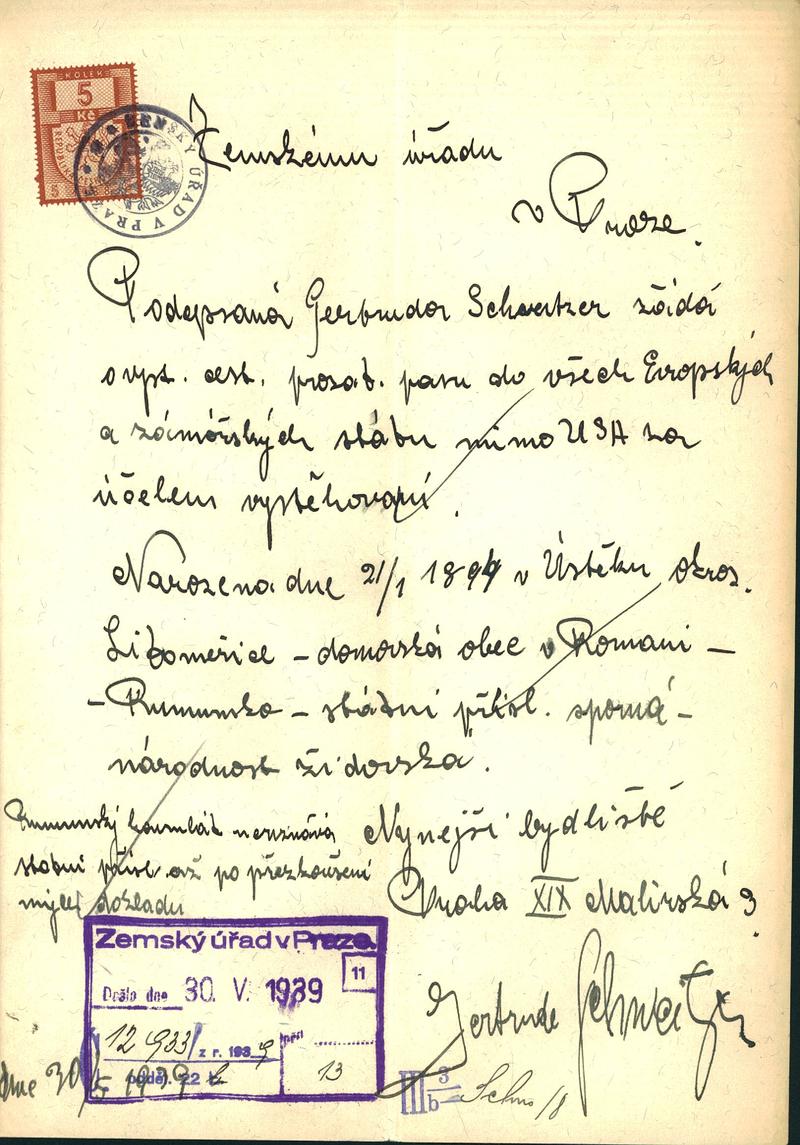 KOLEK
5
Kč
ZEMSKÝ ÚŘAD V PRAZE
Zemskému úřadu
v Praze.
Podepsaná Gertruda Schweitzer žádá
o vyst. cest. prozat. pasu do všech Evropských
a zámořských států mimo USA za
účelem vystěhovaní.
Narozena dne 21/1 1894 v Úštěku okres.
Litoměřice – domovská obec v Romani –
– Rumunsko – státní přísl. sporná –
národnost židovská.
Rumunský konsulát neuznává
státní přísl. až po přezkoušení
mých dokladů
Nynejší bydliště
Praha XIX Malířská 3.
Gertrude Schweitzer
Zemský úřad v Praze.
11
Došlo dne 30. V. 1939
12933/ z r. 1939
příl.
13
odděl. 22
dne 30/5 1939
III 3
b